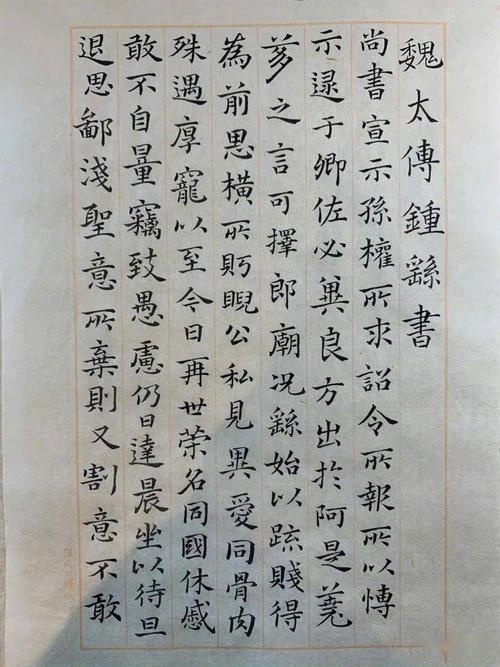 魏太傅鍾繇書
尚書宣示孫權所求詔令所報所以博
示逯于卿佐必冀良方出於阿是蒭
荛之言可擇郎廟况繇始以疏賤得
為前恩橫所眄睨公私見異愛同骨肉
殊遇厚寵以至今日再世荣名同國休慼
敢不自量竊致愚慮仍日達晨坐以待旦
退思鄙淺聖意所棄則又割意不敢